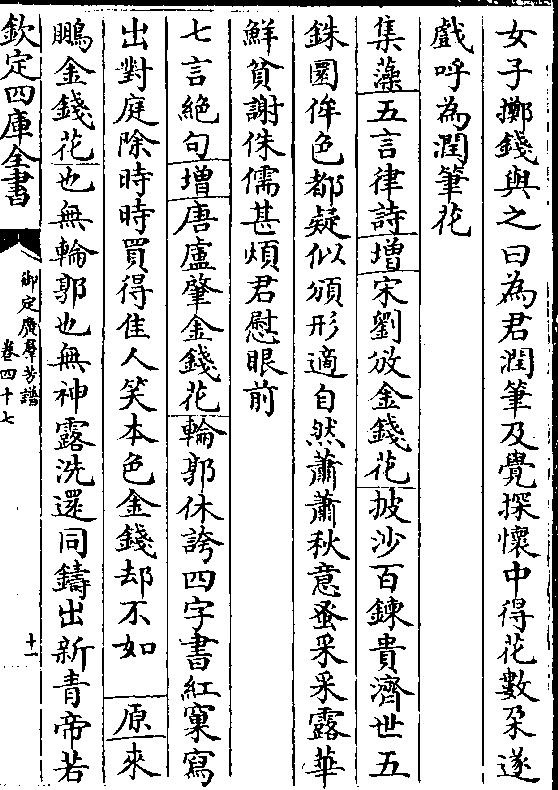 女子擲錢與之曰為君潤筆及覺探懷中得花數朶遂
戲呼為潤筆花
集藻五言律詩增宋劉攽金錢花披沙百鍊貴濟世五
銖圜侔色都疑似頒形適自然蕭蕭秋意蚤采采露華
鮮貧謝侏儒甚煩君慰眼前
七言絕句增唐盧肇金錢花輪郭休誇四字書紅窠寫
出對庭除時時買得佳人笑本色金錢却不如　原來
鵬金錢花也無輪郭也無神露洗還同鑄出新青帝若
欽定四庫全書
御定廣羣芳譜
卷四十七
十一